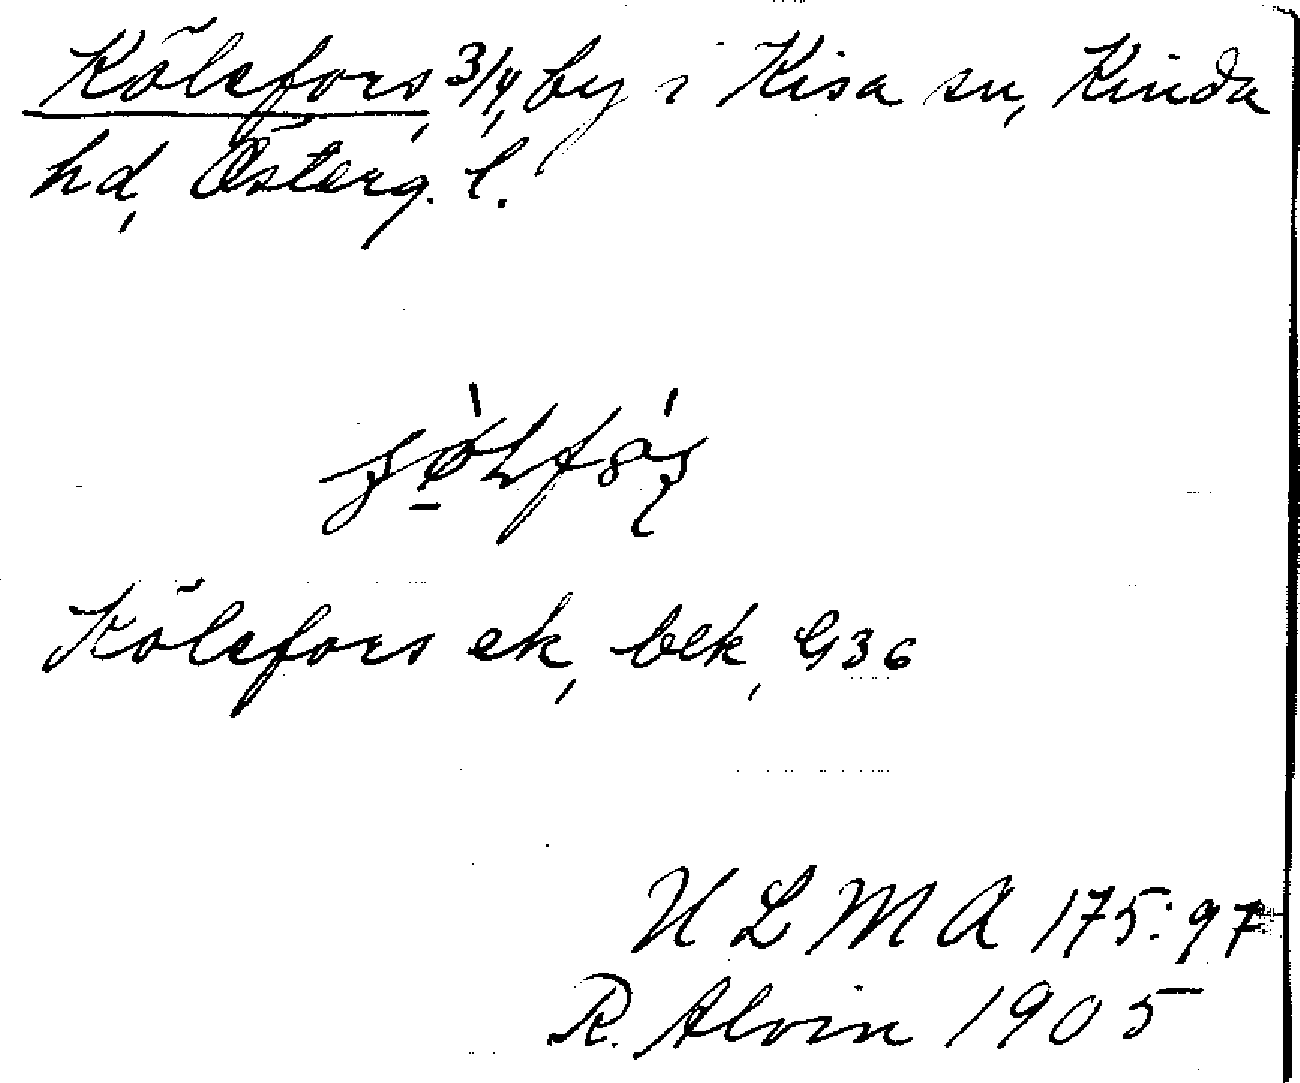 Kölefors, 3/4, by i Kisa sn, Kinda
hd, Österg. l.
Kölefors ek, bek, G36
ULMA 175:97
R. Alvin 1905